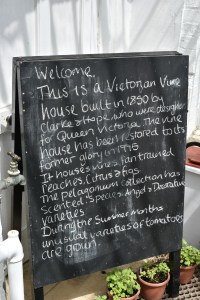 Welcome.
This is a Victorian Vine
house built in 1850 by
Clarke & Hope, who were designers
for Queen Victoria. The vine
house has been restored to its
former glory in 1995
It houses vines, fan trained
Peaches, Citrus & figs.
The Pelargonium collection has
Scented, species, Angel & Decorative
varieties
During the Summer months
unusual varieties of tomatoes
are grown